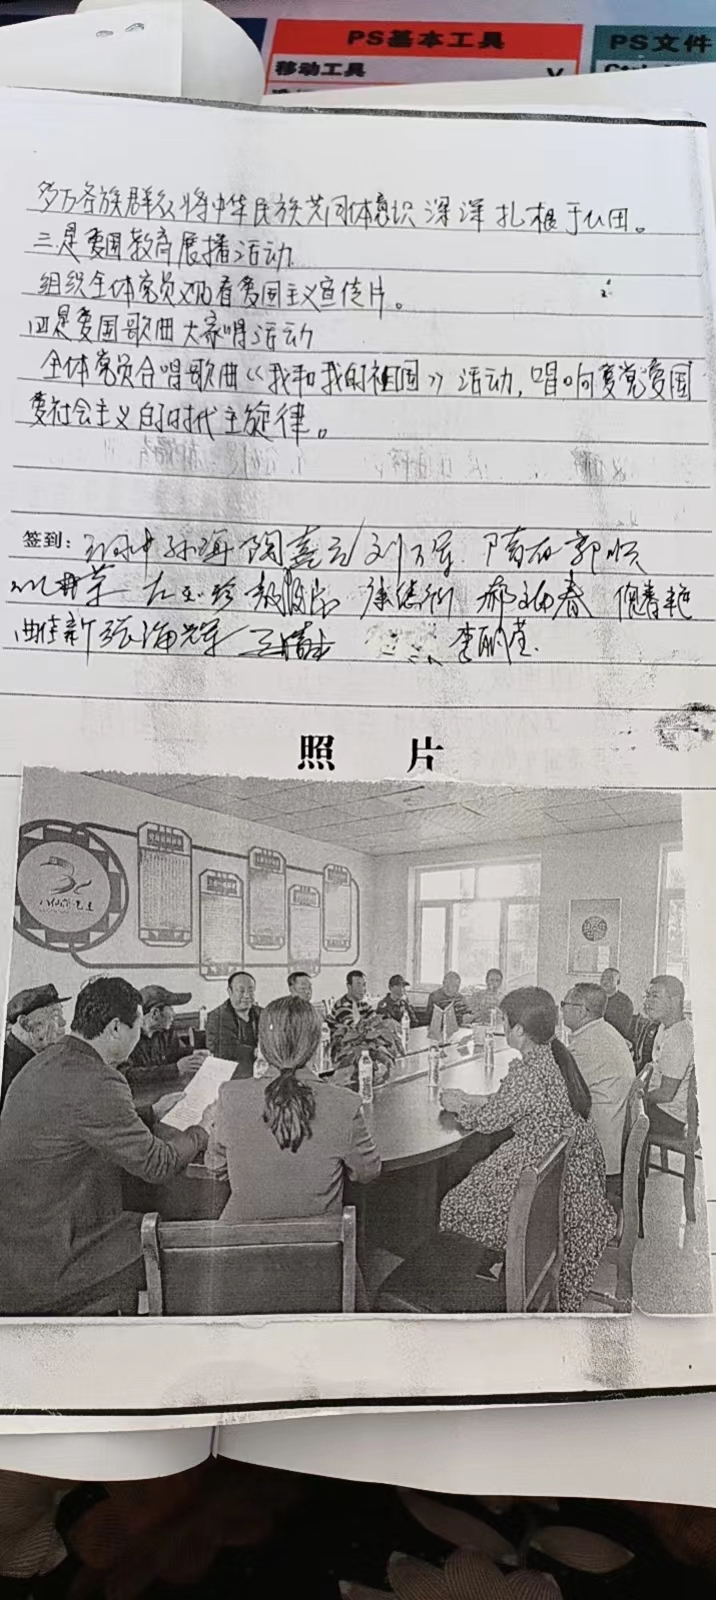 PS基本工具
PS文件
移动工具 V
多万各族群众将中华民族共同体意识深深扎根于心田。
三是爱国教育展播活动
组织全体党员观看爱国主义宣传片。
四是爱国歌曲大家唱活动
全体党员合唱歌曲《我和我的祖国》活动，唱响爱党爱国
爱社会主义的时代主旋律。
签到：孙海 陶喜云 刘万军 隋石 郭顺
康德街
曲维新 张海辉 李丽莹
照片